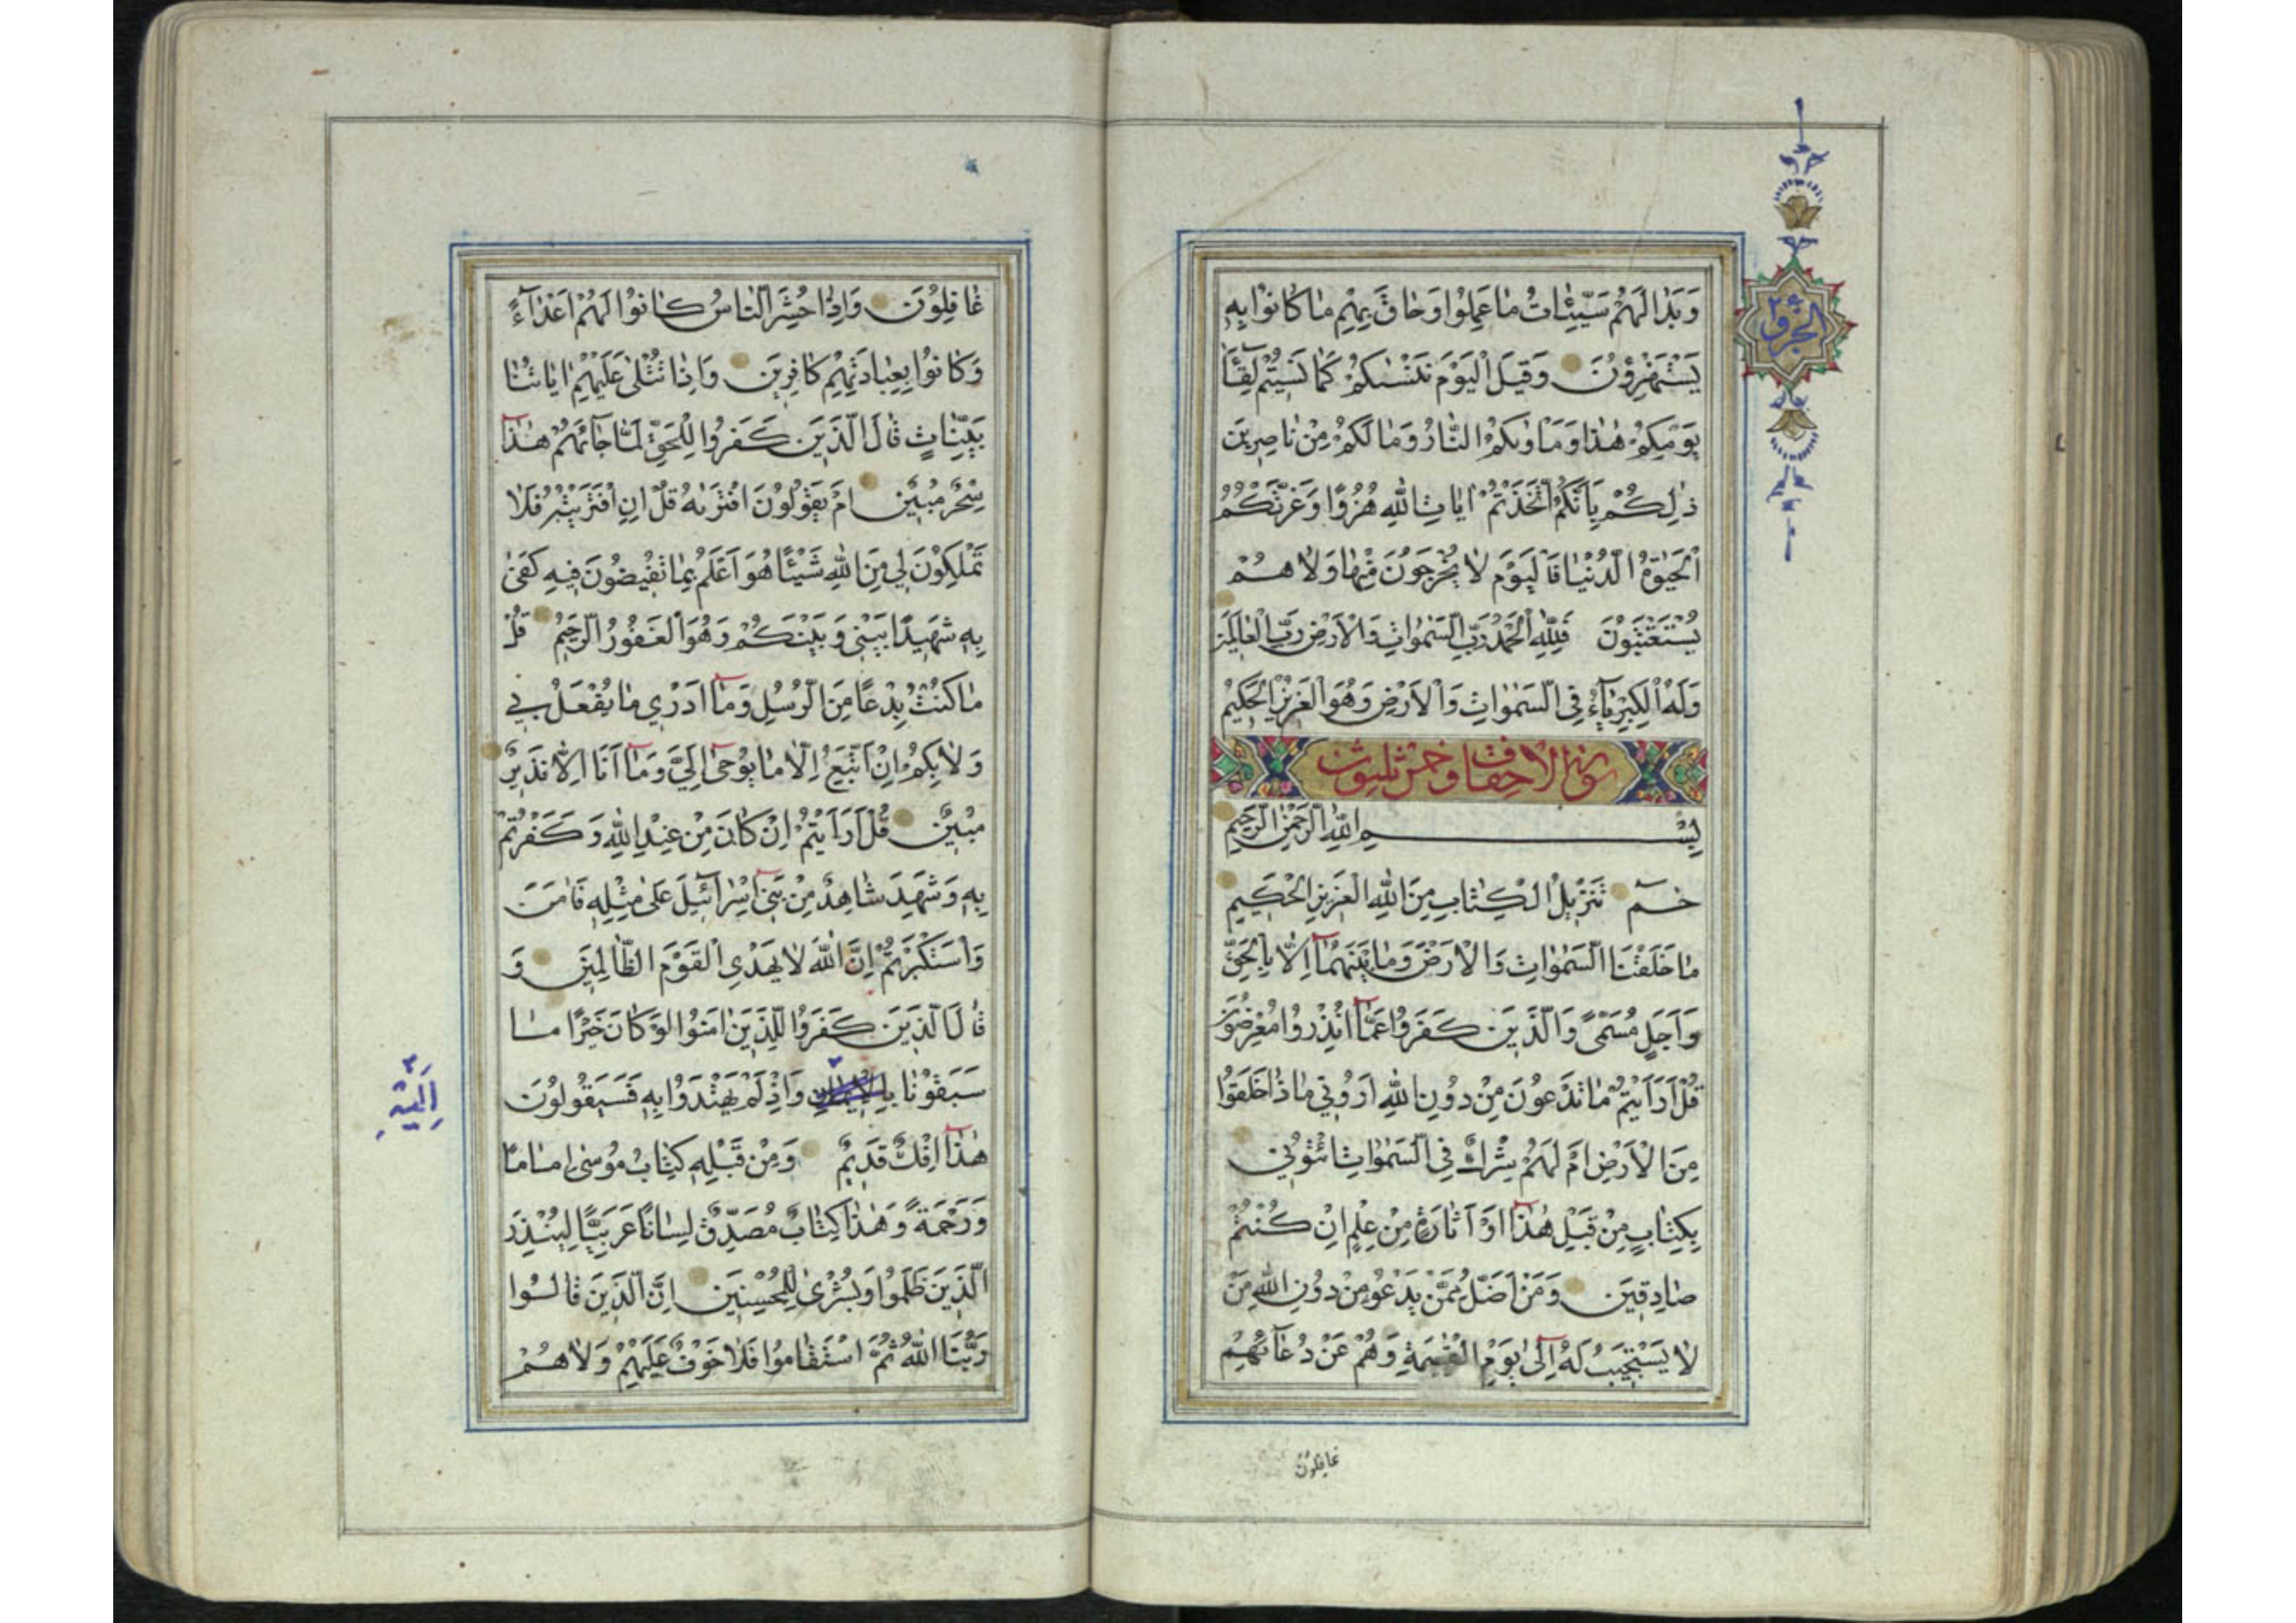 الجزو ٢٦
وَبَدٰا لَهُمْ سَيِّئٰاتُ مٰا عَمِلُوا وَحٰاقَ بِهِمْ مٰا كٰانُوا بِهِ
يَسْتَهْزِؤُنَ وَقيلَ الْيَوْمَ نَنْسٰىكُمْ كَمٰا نَسيتُمْ لِقٰٓاءَ
يَوْمِكُمْ هٰذٰا وَمَاْوٰىكُمُ النّٰارُ وَمٰا لَكُمْ مِنْ نٰاصِرينَ
ذٰلِكُمْ بِاَنَّكُمُ اتَّخَذْتُمْ اٰيٰاتِ اللّٰهِ هُزُوًا وَغَرَّتْكُمُ
الْحَيٰوةُ الدُّنْيٰا فَالْيَوْمَ لٰا يُخْرَجُونَ مِنْهٰا وَلٰا هُمْ
يُسْتَعْتَبُونَ فَلِلّٰهِ الْحَمْدُ رَبِّ السَّمٰوٰاتِ وَالْاَرْضِ رَبِّ الْعٰالَمينَ
وَلَهُ الْكِبْرِيٰٓاءُ فِي السَّمٰوٰاتِ وَالْاَرْضِ وَهُوَ الْعَزيزُ الْحَكيمُ
سورة الاحقاف وخمس ثلثون
بِسْمِ اللّٰهِ الرَّحْمٰنِ الرَّحيمِ
حٰمٓ تَنْزيلُ الْكِتٰابِ مِنَ اللّٰهِ الْعَزيزِ الْحَكيمِ
مٰا خَلَقْنَا السَّمٰوٰاتِ وَالْاَرْضَ وَمٰا بَيْنَهُمٰٓا اِلّٰا بِالْحَقِّ
وَاَجَلٍ مُسَمًّى وَالَّذينَ كَفَرُوا عَمّٰٓا اُنْذِرُوا مُعْرِضُونَ
قُلْ اَرَاَيْتُمْ مٰا تَدْعُونَ مِنْ دُونِ اللّٰهِ اَرُوني مٰاذٰا خَلَقُوا
مِنَ الْاَرْضِ اَمْ لَهُمْ شِرْكٌ فِي السَّمٰوٰاتِ ائْتُوني
بِكِتٰابٍ مِنْ قَبْلِ هٰذٰٓا اَوْ اَثٰارَةٍ مِنْ عِلْمٍ اِنْ كُنْتُمْ
صٰادِقينَ وَمَنْ اَضَلُّ مِمَّنْ يَدْعُو مِنْ دُونِ اللّٰهِ مَنْ
لٰا يَسْتَجيبُ لَهُ اِلٰى يَوْمِ الْقِيٰمَةِ وَهُمْ عَنْ دُعٰٓائِهِمْ
غافلون
غٰافِلُونَ وَاِذٰا حُشِرَ النّٰاسُ كٰانُوا لَهُمْ اَعْدٰٓاءً
وَكٰانُوا بِعِبٰادَتِهِمْ كٰافِرينَ وَاِذٰا تُتْلٰى عَلَيْهِمْ اٰيٰاتُنٰا
بَيِّنٰاتٍ قٰالَ الَّذينَ كَفَرُوا لِلْحَقِّ لَمّٰا جٰٓائَهُمْ هٰذٰا
سِحْرٌ مُبينٌ اَمْ يَقُولُونَ افْتَرٰىهُ قُلْ اِنِ افْتَرَيْتُهُ فَلٰا
تَمْلِكُونَ لي مِنَ اللّٰهِ شَيْئًا هُوَ اَعْلَمُ بِمٰا تُفيضُونَ فيهِ كَفٰى
بِهِ شَهيدًا بَيْني وَبَيْنَكُمْ وَهُوَ الْغَفُورُ الرَّحيمُ قُلْ
مٰا كُنْتُ بِدْعًا مِنَ الرُّسُلِ وَمٰٓا اَدْري مٰا يُفْعَلُ بي
وَلٰا بِكُمْ اِنْ اَتَّبِعُ اِلّٰا مٰا يُوحٰٓى اِلَيَّ وَمٰٓا اَنَا اِلّٰا نَذيرٌ
مُبينٌ قُلْ اَرَاَيْتُمْ اِنْ كٰانَ مِنْ عِنْدِ اللّٰهِ وَكَفَرْتُمْ
بِهِ وَشَهِدَ شٰاهِدٌ مِنْ بَنيٓ اِسْرٰٓائيلَ عَلٰى مِثْلِهِ فَاٰمَنَ
وَاسْتَكْبَرْتُمْ اِنَّ اللّٰهَ لٰا يَهْدِي الْقَوْمَ الظّٰالِمينَ وَ
قٰالَ الَّذينَ كَفَرُوا لِلَّذينَ اٰمَنُوا لَوْ كٰانَ خَيْرًا مٰا
سَبَقُونٰا وَاِذْ لَمْ يَهْتَدُوا بِهِ فَسَيَقُولُونَ
اِلَيْهِ
هٰذٰٓا اِفْكٌ قَديمٌ وَمِنْ قَبْلِهِ كِتٰابُ مُوسٰى اِمٰامًا
وَرَحْمَةً وَهٰذٰا كِتٰابٌ مُصَدِّقٌ لِسٰانًا عَرَبِيًّا لِيُنْذِرَ
الَّذينَ ظَلَمُوا وَبُشْرٰى لِلْمُحْسِنينَ اِنَّ الَّذينَ قٰالُوا
رَبُّنَا اللّٰهُ ثُمَّ اسْتَقٰامُوا فَلٰا خَوْفٌ عَلَيْهِمْ وَلٰا هُمْ